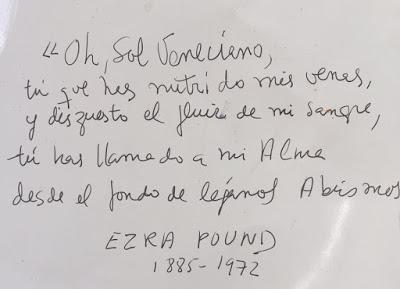 «Oh, Sol Veneciano,
tú que has nutrido mis venas,
y dispuesto el fluir de mi sangre,
tú has llamado a mi Alma
desde el fondo de lejanos Abismos
EZRA POUND
1885-1972